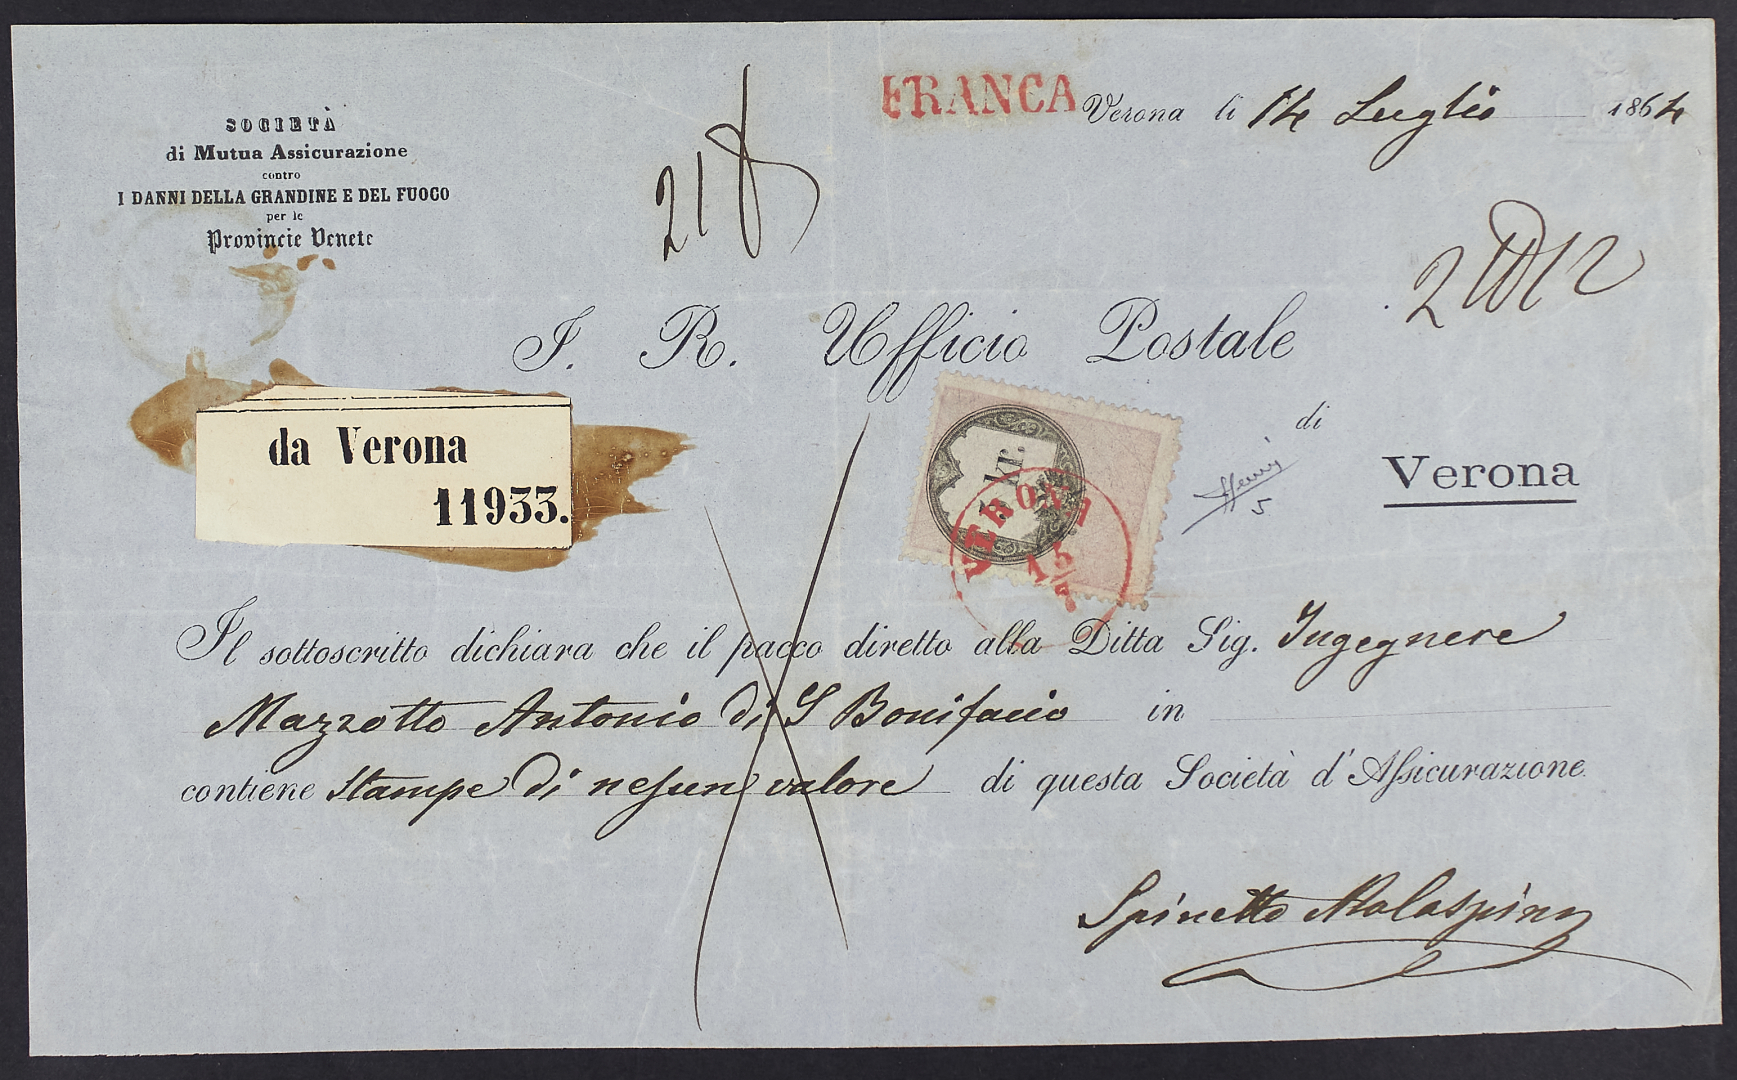 SOCIETÀ
di Mutua Assicurazione
contro
I DANNI DELLA GRANDINE E DEL FUOCO
per le
Provincie Venete
FRANCA
Verona li 14 Luglio 1864
218
I. R. Ufficio Postale
di
Verona
da Verona
11933.
1 kr.
VERONA
15/7
Il sottoscritto dichiara che il pacco diretto alla Ditta Sig. Ingegnere
Mazzotto Antonio di S Bonifacio in
contiene Stampe di nessun valore di questa Società d'Assicurazione.
Spinetta Malaspina